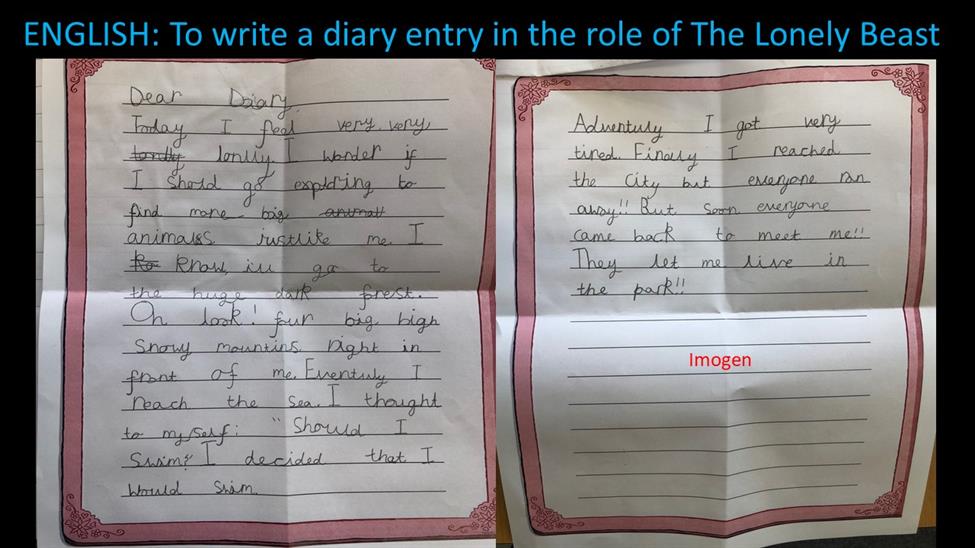 ENGLISH: To write a diary entry in the role of The Lonely Beast
Dear Daiary
Today I feel very, very,
lonlly. I wonder if
I shold go exploring to
find more big
animals justlike me. I
know, ill go to
the huge dark forest.
Oh look! four big high
Snowy mountins right in
front of me. Eventuly I
reach the Sea. I thought
to myself: "Should I
Swim?" I decided that I
would Swim.
Adventuly I got very
tired. Finally I reached
the City but everyone ran
away!! But soon everyone
came back to meet me!!
They let me live in
the park!!
Imogen